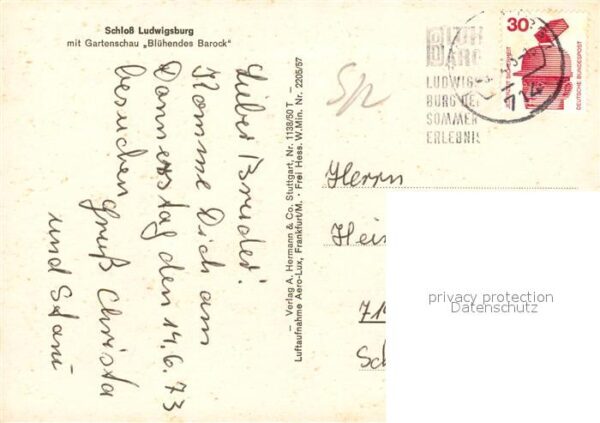 Schloß Ludwigsburg
mit Gartenschau „Blühendes Barock"
Lieber Bruder!
Komme Dich am
Donnerstag den 14.6.73
besuchen
Gruß Christa
und Stani
— Verlag A. Hermann & Co. Stuttgart, Nr. 1138/50 T —
Luftaufnahme Aero-Lux, Frankfurt/M. · Frei Hess. W.Min. Nr. 2205/57
LUDWIGS
BURG DER
SOMMER
ERLEBNIS
714
30
DEUTSCHE BUNDESPOST
Herrn
Hein
71
Sch
privacy protection
Datenschutz